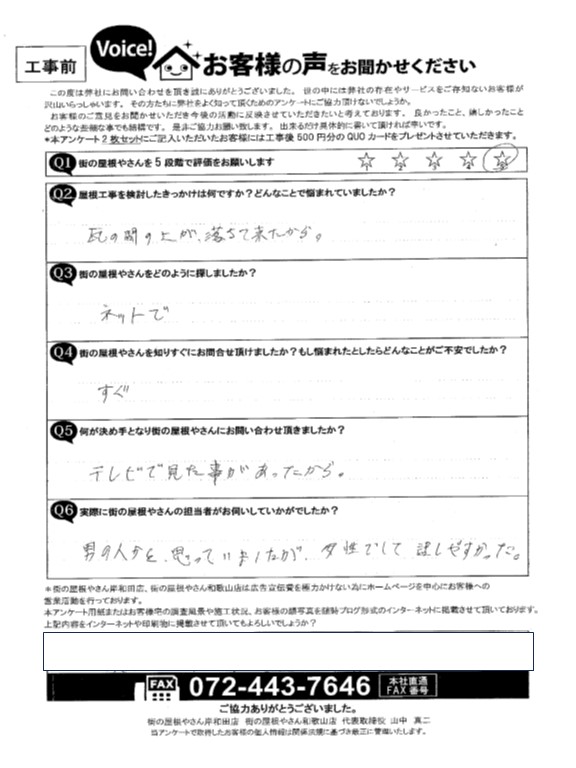 工事前
Voice!
お客様の声をお聞かせください
この度は弊社にお問い合わせを頂き誠にありがとうございました。世の中には弊社の存在やサービスをご存知ないお客様が
沢山いらっしゃいます。その方たちに弊社をよく知って頂くためのアンケートにご協力頂けないでしょうか。
お客様のご意見をお聞かせいただき今後の活動に反映させていただきたいと考えております。良かったこと、嬉しかったこと
どのような些細な事でも結構です。是非ご協力お願い致します。出来るだけ具体的に書いて頂ければ幸いです。
*本アンケート2枚セットにご記入いただいたお客様には工事後500円分のQUOカードをプレゼントさせていただきます。
Q1 街の屋根やさんを5段階で評価をお願いします ☆1 ☆2 ☆3 ☆4 ☆5
Q2 屋根工事を検討したきっかけは何ですか?どんなことで悩まれていましたか?
瓦の間の土が、落ちて来たから。
Q3 街の屋根やさんをどのように探しましたか?
ネットで
Q4 街の屋根やさんを知りすぐにお問合せ頂けましたか?もし悩まれたとしたらどんなことがご不安でしたか?
すぐ
Q5 何が決め手となり街の屋根やさんにお問い合わせ頂きましたか?
テレビで見た事があったから。
Q6 実際に街の屋根やさんの担当者がお伺いしていかがでしたか?
男の人かと、思っていましたが、女性でして 話しやすかった。
*街の屋根やさん岸和田店、街の屋根やさん和歌山店は広告宣伝費を極力かけない為にホームページを中心にお客様への
営業活動を行っております。
本アンケート用紙またはお客様宅の調査風景や施工状況、お客様の顔写真を随時ブログ形式のインターネットに掲載させて頂いております。
上記内容をインターネットや印刷物に掲載させて頂いてもよろしいでしょうか?
FAX 072-443-7646 本社直通
FAX番号
ご協力ありがとうございました。
街の屋根やさん岸和田店 街の屋根やさん和歌山店 代表取締役 山中 真二
当アンケートで取得したお客様の個人情報は関係法規に基づき厳正に管理いたします。